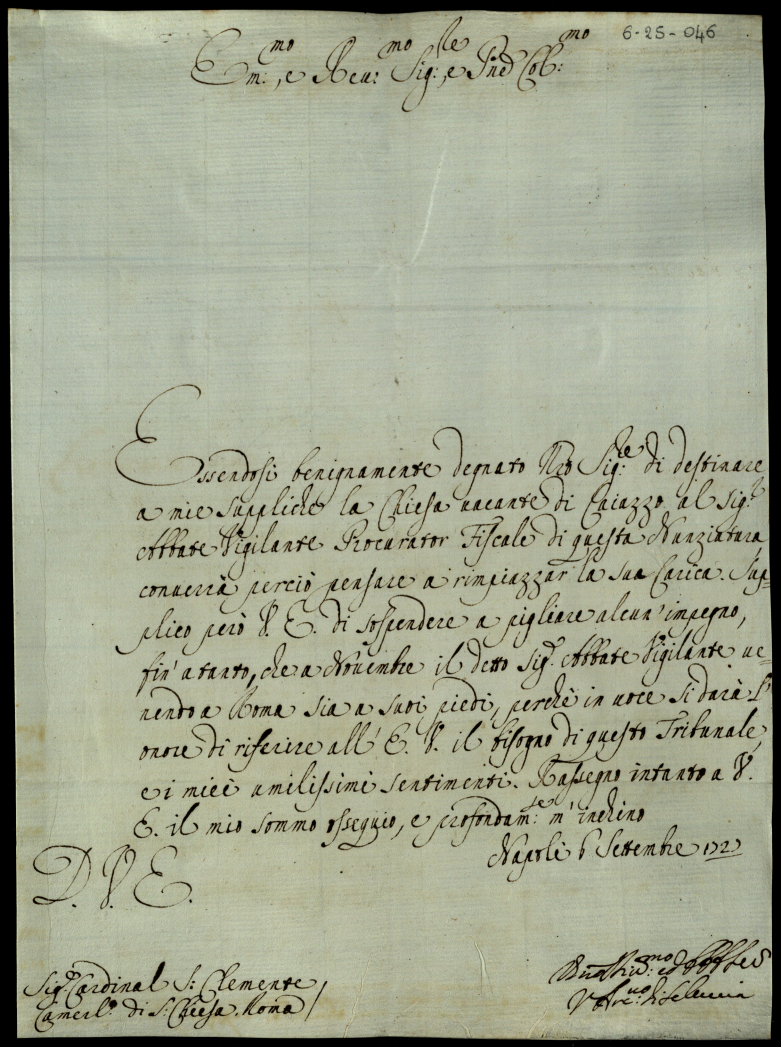 6-25-046
Em.mo, e Reu:mo Sig:re, e Pnẽ Col:mo
Essendosi benignamente degnato Nrõ Sig:re di destinare
a mie suppliche la Chiesa uacante di Caiazzo al Sig:r
Abbate Vigilante Procurator Fiscale di questa Nunziatura
conuerrà perciò pensare a rimpiazzar la sua Carica. Sup-
plico però V. E. di sospendere a pigliare alcun' impegno,
fin' a tanto, che a Nouembre il detto Sig.r Abbate Vigilante ue-
nendo a Roma sia a suoi piedi, perche in uoce si darà l'
onore di riferire all' E. V. il bisogno di questo Tribunale,
e i miei umilissimi sentimenti. Rassegno intanto a V.
E. il mio sommo ossequio, e profondam:te m' inchino
Napoli 6 Settembre 1727
D. V. E.
Sig.r Cardinal S: Clemente
Camerl.o di S: Chiesa Roma